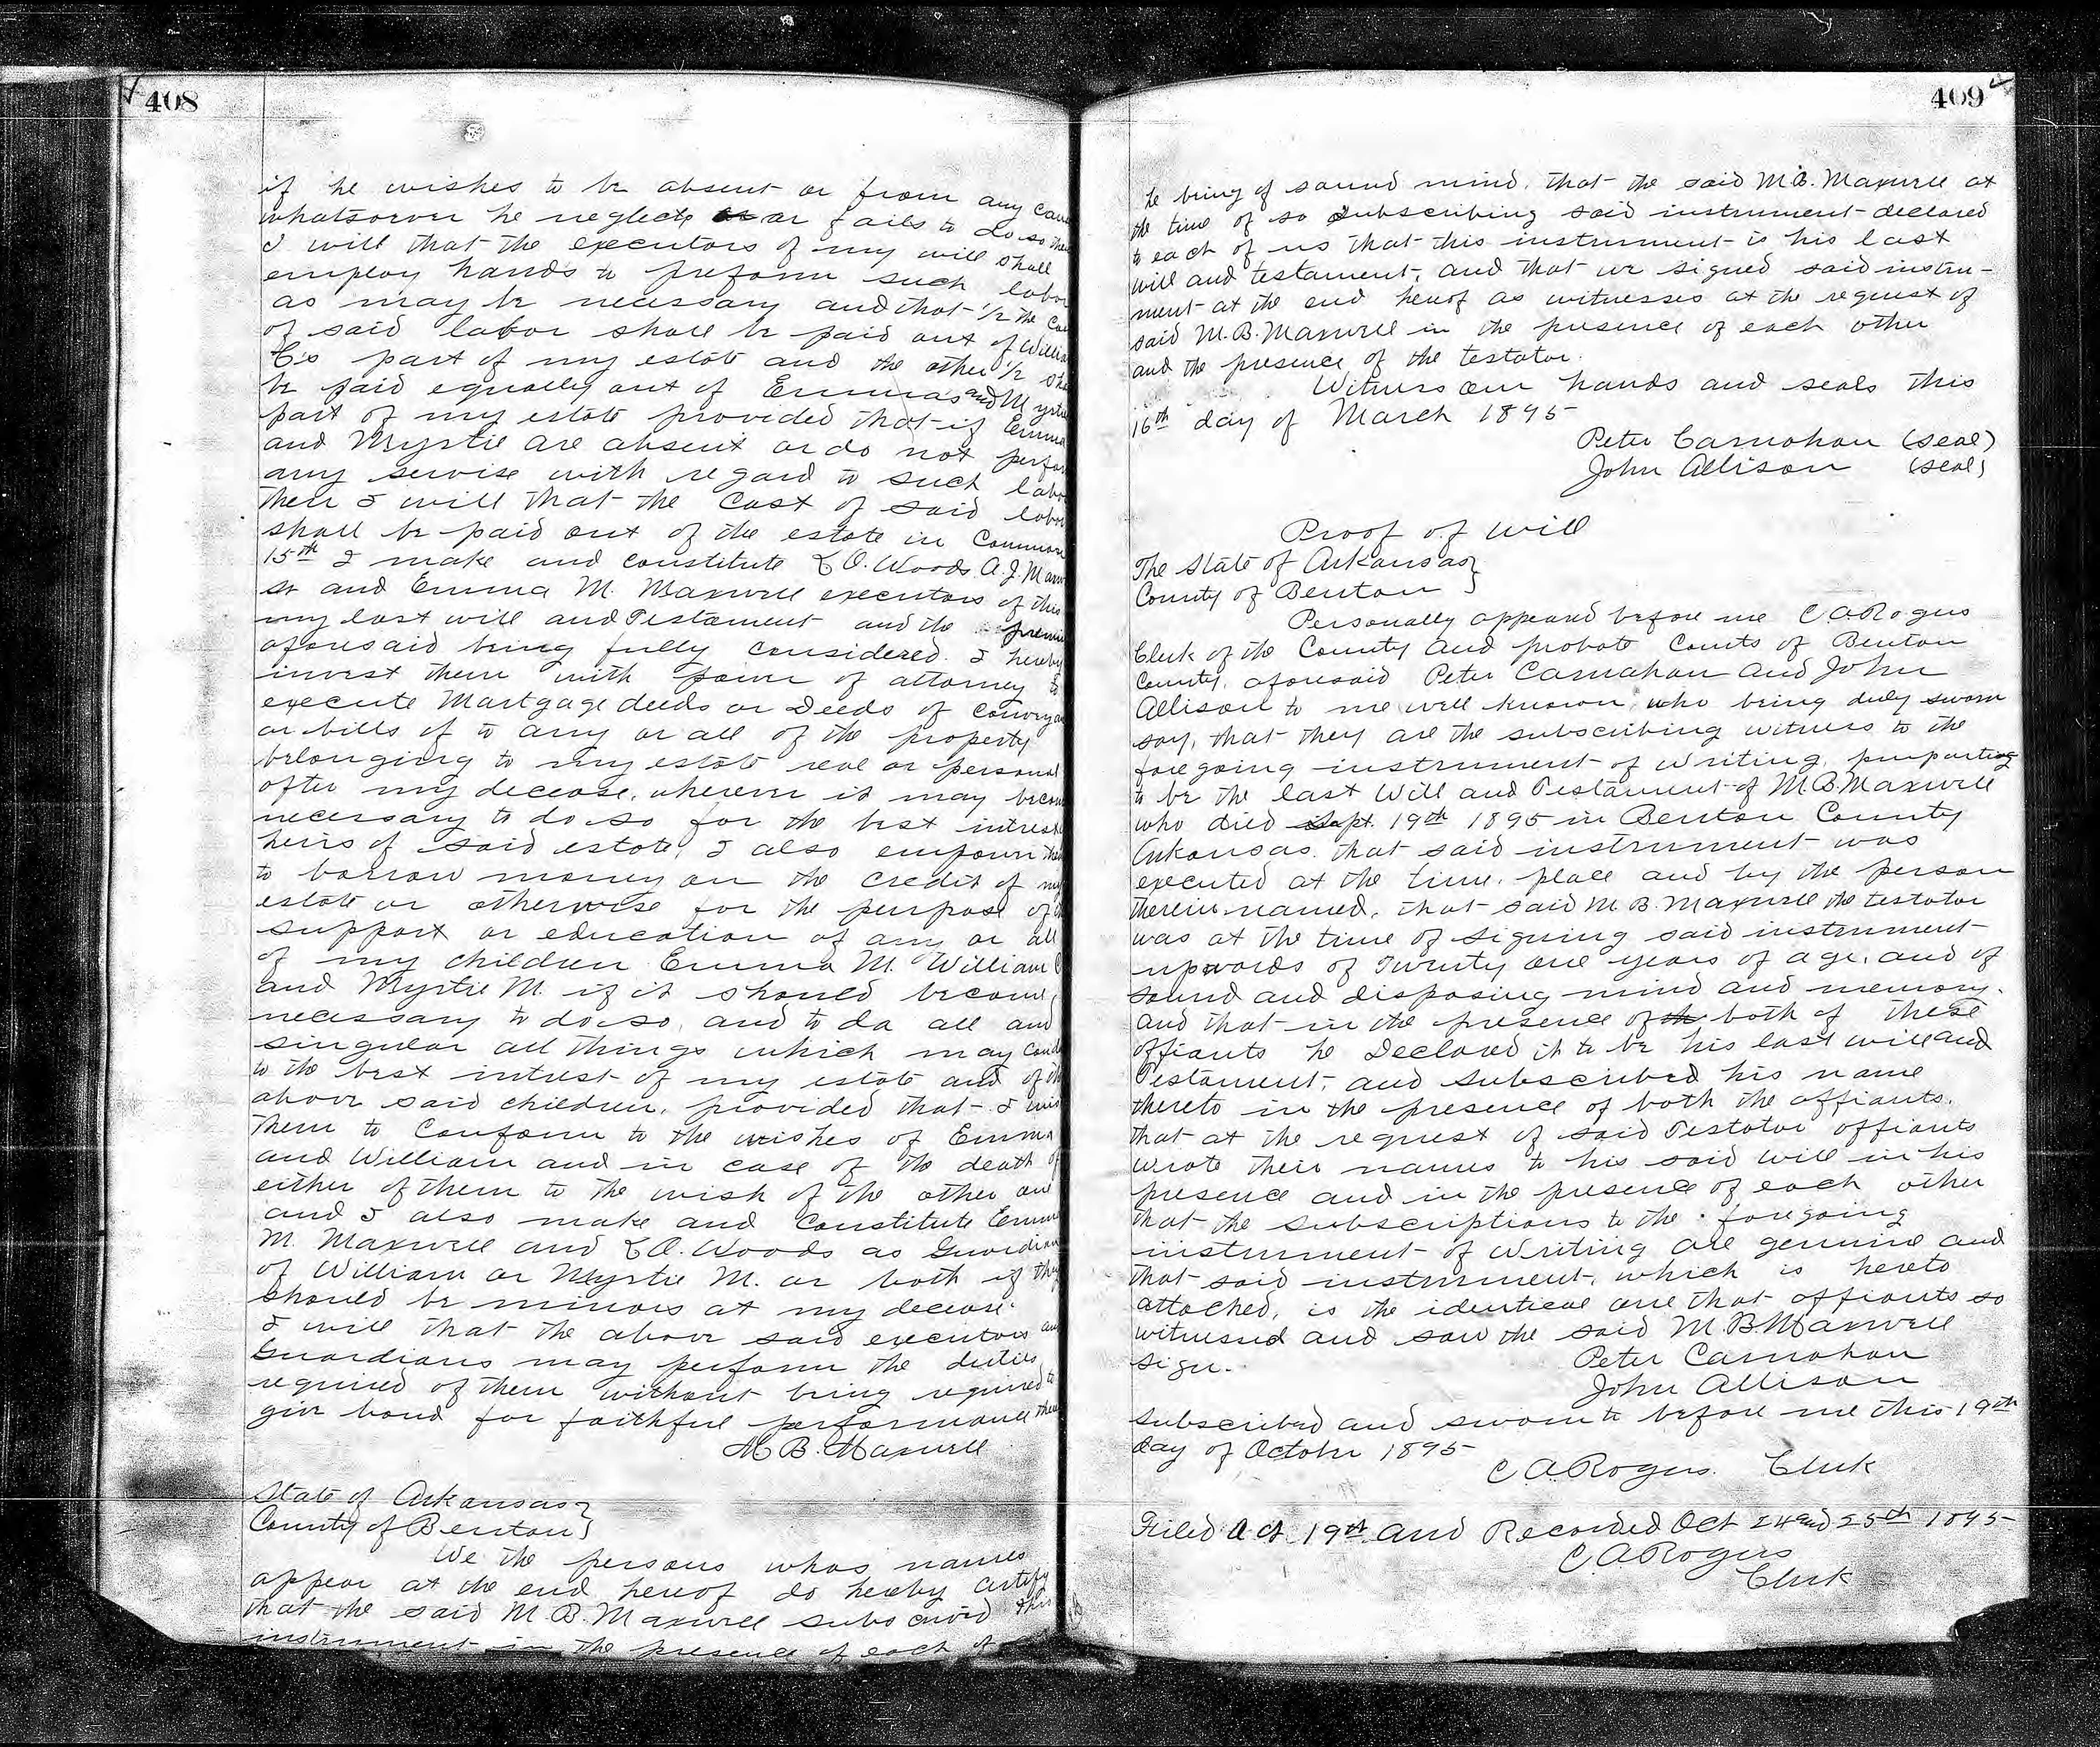 408
if he wishes to be absent or from any cau
whatsoever he neglects or fails to do so then
I will that the executors of my will shall
employ hands to preform such labor
as may be necessary and that 1/2 the Co
of said labor shall be paid out of Willia
C's part of my estate and the other 1/2 sha
be paid equally out of Emmas and Myrtie
part of my estate provided that if Emma
and Myrtie are absent or do not perfor
any servise with regard to such labo
then I will that the Cost of said labor
shall be paid out of the estate in Common
15th I make and constitute O. Woods A. J. Maxw
sr and Emma M. Maxwell executors of this
my last will and Testament and the premi
aforesaid being fully considered. I hereby
invest them with power of attorney to
execute Mortgage deeds or Deeds of Conveya
or bills of to any or all of the property
belonging to my estate real or personal
after my decease, wherein it may becom
necessary to do so for the best intrest
heirs of said estate, I also empower the
to borrow money on the credit of my
estate or otherwise for the purpose of
support or education of any or all
of my children Emma M. William C
and Myrtie M. if it should become
necessary to do so, and to do all and
singular all things which may Cond
to the best intrest of my estate and of th
above said children, provided that I wis
them to Conform to the wishes of Emma
and William and in case of the death of
either of them to the wish of the other one
and I also make and Constitute Emma
M. Maxwell and O. Woods as Guardian
of William or Myrtie M. or both if they
should be minors at my decease.
I will that the above said executors an
Guardians may perform the duties
required of them without being required to
give bond for faithful performance
M. B. Maxwell
State of Arkansas }
County of Benton }
We the persons whos names
appear at the end hereof do hereby certify
that the said M. B. Maxwell subscribed this
instrument in the presence of each of
409
to being of sound mind, that the said M. B. Maxwell at
the time of so subscribing said instrument declared
to each of us that this instrument is his last
will and testament, and that we signed said instru-
ment at the end hereof as witnesses at the request of
said M. B. Maxwell in the presence of each other
and the presence of the testator.
Witness our hands and seals this
16th day of March 1895
Peter Carnahan (seal)
John Allison (seal)
Proof of Will
The State of Arkansas }
County of Benton }
Personally appeared before me C A Rogers
Clerk of the County and probate Courts of Benton
County, aforesaid Peter Carnahan and John
Allison to me well known, who being duly sworn
say, that they are the subscribing witness to the
foregoing instrument of writing, purporting
to be the last Will and Testament of M. B. Maxwell
who died Sept. 19th 1895 in Benton County
Arkansas. that said instrument was
executed at the time, place and by the person
therein named, that said M. B. Maxwell the testator
was at the time of signing said instrument
upwards of Twenty one years of age, and of
sound and disposing mind and memory.
and that in the presence of th both of these
affiants he Declared it to be his last will and
Testament, and subscribed his name
thereto in the presence of both the affiants.
that at the request of said Testator affiants
wrote their names to his said will in his
presence and in the presence of each other
that the subscriptions to the foregoing
instrument of writing are genuine and
that said instrument, which is hereto
attached, is the identical one that affiants so
witnessed and saw the said M. B. Maxwell
sign.
Peter Carnahan
John Allison
subscribed and sworn to before me this 19th
day of October 1895
C A Rogers. Clerk
Filed Oct 19th and Recorded Oct 24 and 25th 1895
C A Rogers
Clerk